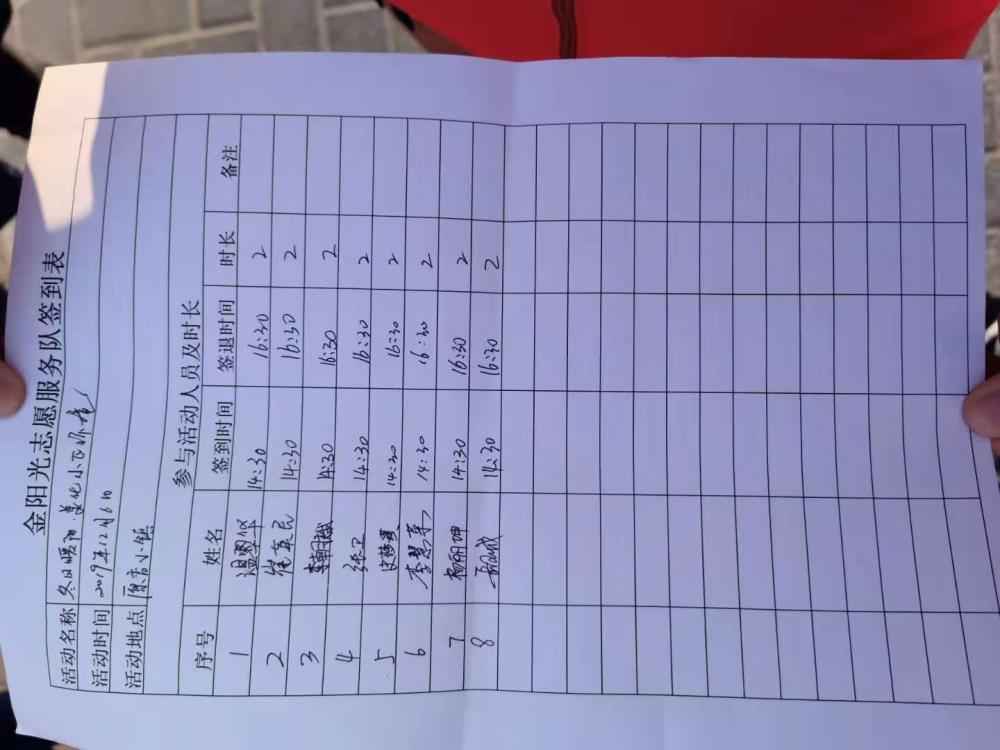 金阳光志愿服务队签到表
活动名称 冬日暖阳·美化小飞环境
活动时间 2019年12月6日
活动地点 原香小镇
参与活动人员及时长
序号 姓名 签到时间 签退时间 时长 备注
1 温翠华 14:30 16:30 2
2 14:30 16:30 2
3 14:30 16:30 2
4 张卫 14:30 16:30 2
5 14:30 16:30 2
6 李慧荣 14:30 16:30 2
7 杨丽坤 14:30 16:30 2
8 14:30 16:30 2